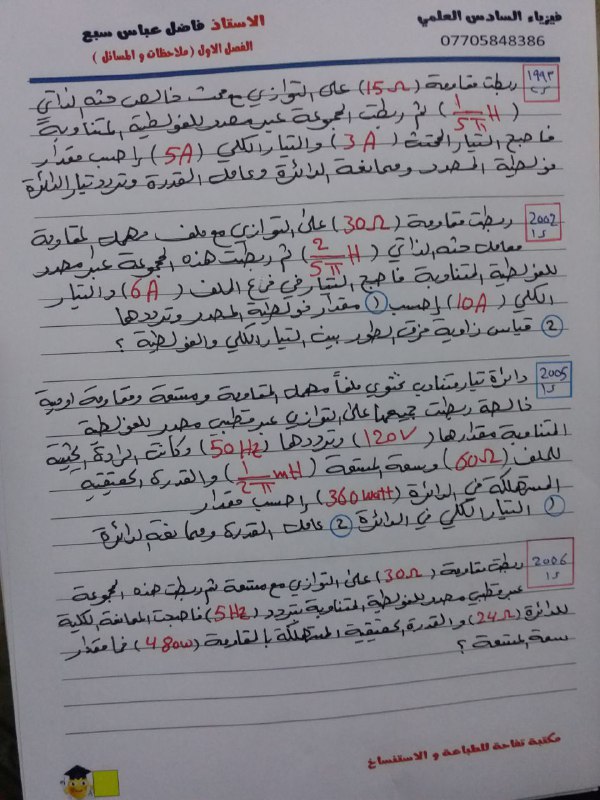 فيزياء السادس العلمي
07705848386
الاستاذ فاضل عباس سبع
الفصل الاول (ملاحظات و المسائل)
١٩٩٣ ربطت مقاومة (15Ω) على التوازي مع محث خالص حثه الذاتي
(1/5π H) ثم ربطت المجموعة عبر مصدر للفولطية المتناوبة
فاصبح التيار المحث (3A) والتيار الكلي (5A) إحسب مقدار
فولطية المصدر وممانعة الدائرة وعامل القدرة وتردد تيار الدائرة
2002 د١ ربطت مقاومة (30Ω) على التوازي مع ملف مهمل المقاومة
معامل حثه الذاتي (2/5π H) ثم ربطت هذه المجموعة عبر مصدر
للفولطية المتناوبة فاصبح التيار في فرع الملف (6A) والتيار
الكلي (10A) إحسب ① مقدار فولطية المصدر وترددها
② قياس زاوية فرق الطور بين التيار الكلي والفولطية ؟
2005 د١ دائرة تيار متناوب تحتوي ملفاً مهمل المقاومة ومتسعة ومقاومة اومية
خالصة ربطت جميعها على التوازي عبر قطبي مصدر للفولطية
المتناوبة مقدارها (120V) وترددها (50Hz) وكانت الرادة الحثية
للملف (60Ω) وسعة المتسعة (1/2π mH) والقدرة الحقيقية
المستهلكة في الدائرة (360watt) إحسب مقدار
① التيار الكلي في الدائرة ② عامل القدرة وممانعة الدائرة
2006 د١ ربطت مقاومة (30Ω) على التوازي مع متسعة ثم ربطت هذه المجموعة
عبر قطبي مصدر للفولطية المتناوبة بتردد (5Hz) فاصبحت الممانعة الكلية
للدائرة (24Ω) والقدرة الحقيقية المستهلكة بالمقاومة (480w) فما مقدار
سعة المتسعة ؟
مكتبة تفاحة للطباعة و الاستنساخ